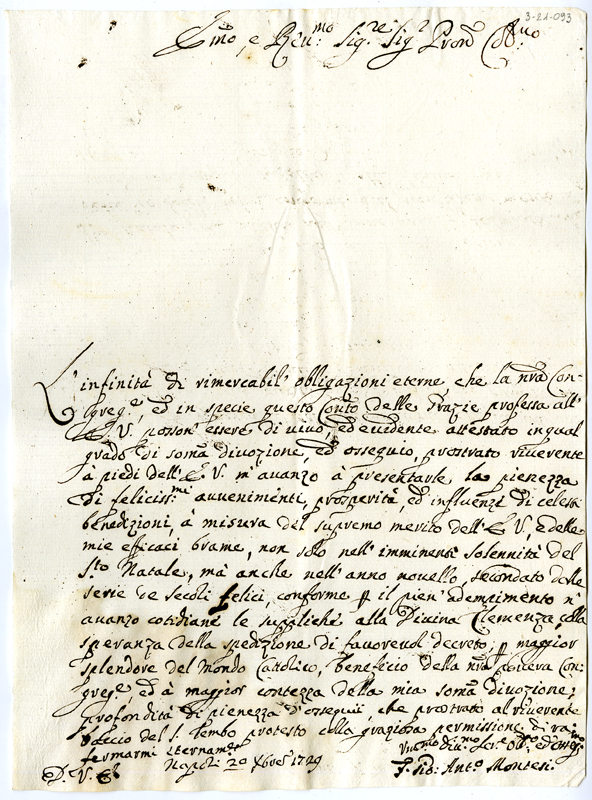 3-21-093
Emo, e Reu:mo Sig.re Sig.r Pron Coll:mo
L'infinità di rimercabil' obligazioni eterne che la nra Con-
greg.e, ed in specie questo Conto delle Grazie professa all'
E. V. posson' essere di uiuo, ed euidente attestato in qual
grado di soma diuozione, ed osseguio, prostrato riuerente
à piedi dell' E. V. m' auanzo à presentarle la pienezza
di felicis:mi auuenimenti, prosperità, ed influenze di celesti
benedizioni, à misura del supremo merito dell' E V, e delle
mie efficaci brame, non solo nell' imminenti solennità del
S.to Natale, mà anche nell' anno nouello, secondato dalle
serie de secoli felici, conforme p il pien' adempimento n'
auanzo cotidiane le suppliche alla Diuina Clemenza, colla
speranza della spedizione di fauoreuol decreto, p maggior
splendore del Mondo Cattolico, beneficio della nra Con-
greg.e, ed à maggior contezza della mia soma diuozione,
profondità di pienezza d'osseguii, che prostrato al riuerente
baccio del S. Lembo protesto colla graziosa permissione di
fermarmi eternam.te
D. V. E.
Napoli 20 Xbre 1729
Ant.o Montesi